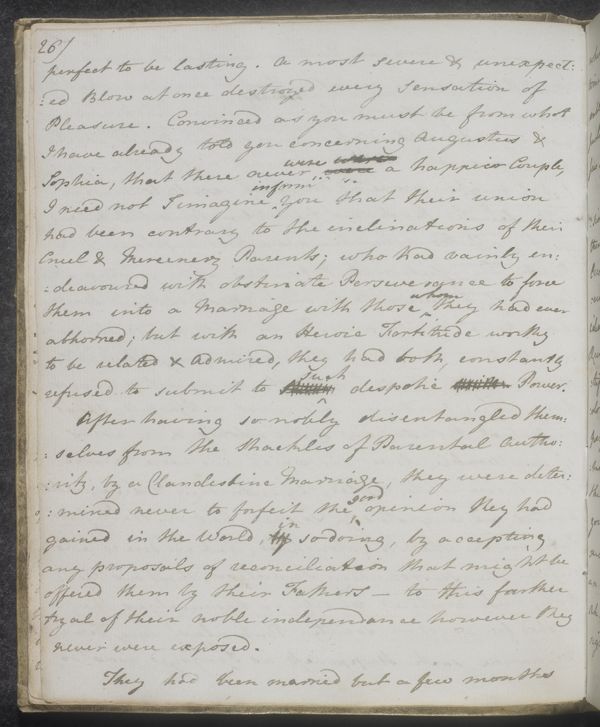 26/
perfect to be lasting. A most severe & unexpect:
:ed Blow at once destroyed every Sensation of
Pleasure. Convinced as you must be from what
I have already told you concerning Augustus &
Sophia, that there never were a happier Couple,
I need not I imagine inform you that their union
had been contrary to the inclinations of their
Cruel & Mercenery Parents; who had vainly en:
:deavoured with obstinate Perseverance to force
them into a Marriage with those whom they had ever
abhorred; but with an Heroic Fortitude worthy
to be related & Admired, they had both, constantly
refused to submit to such despotic Power.
After having so nobly disentangled them:
:selves from the Shackles of Parental Autho:
:rity, by a Clandestine Marriage, they were deter:
:mined never to forfeit the good opinion they had
gained in the World, in so doing, by accepting
any proposals of reconciliation that might be
offered them by their Fathers — to this farther
tryal of their noble independance however they
never were exposed.
They had been married but a few months